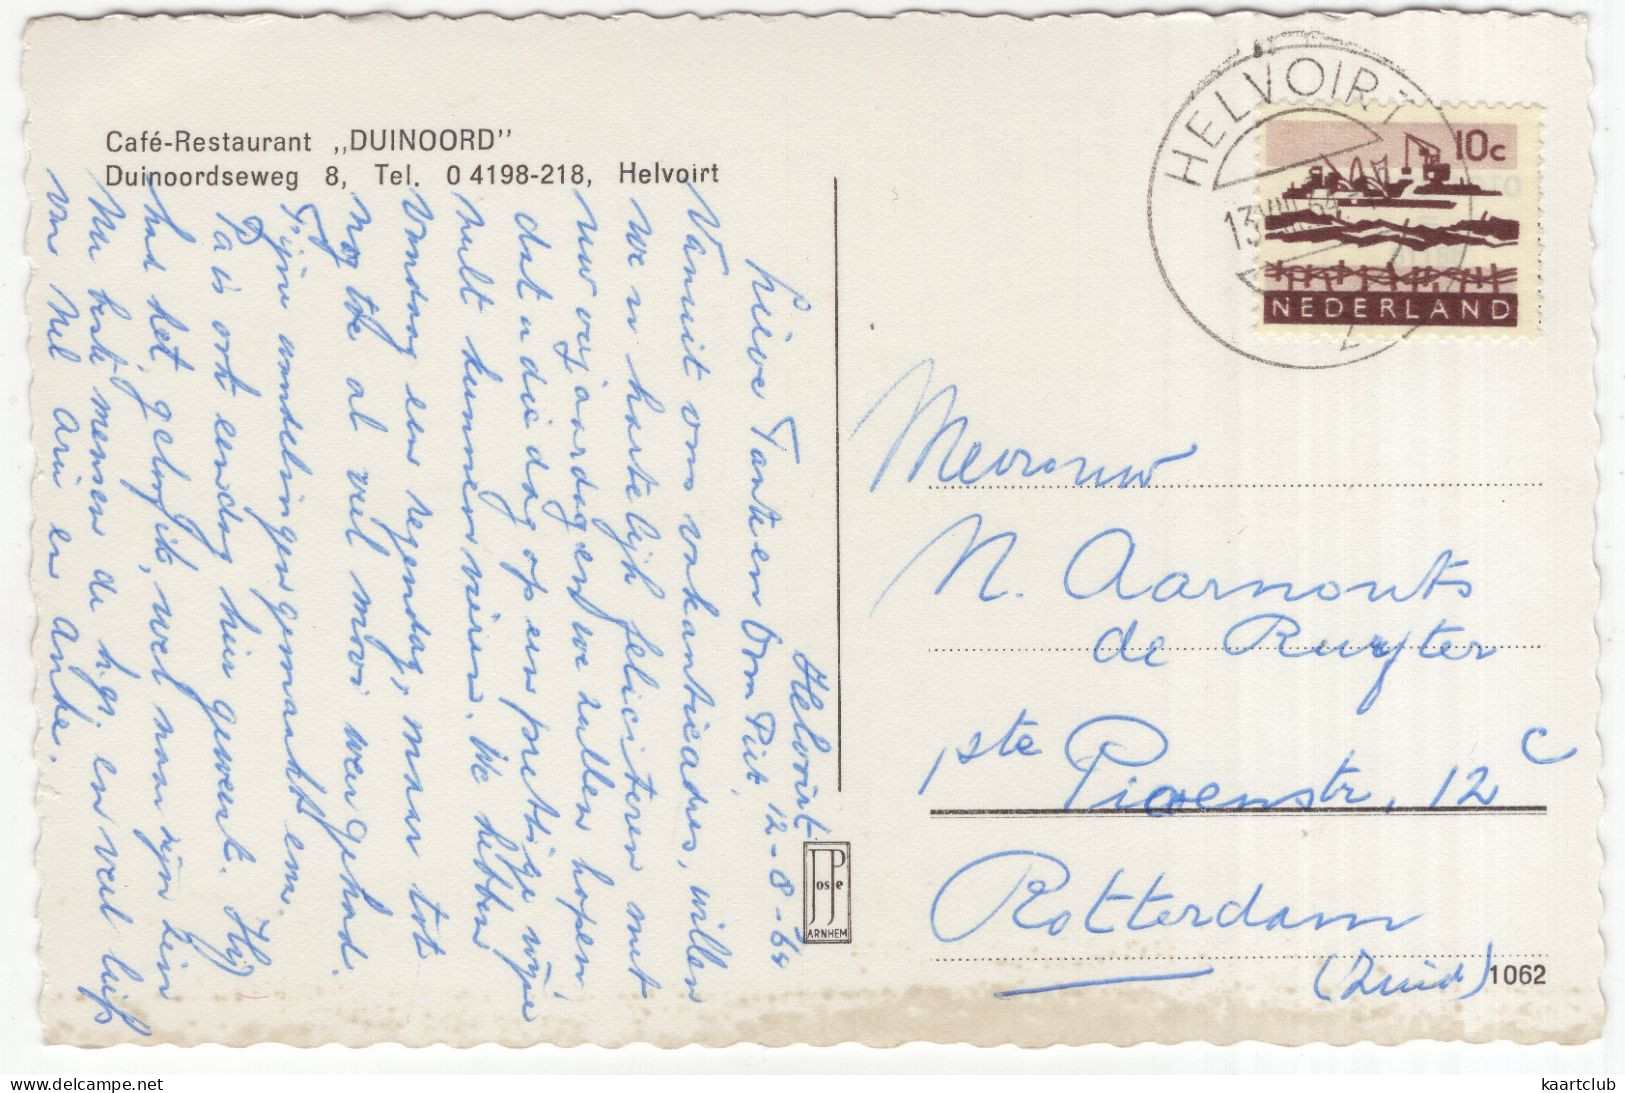 Café-Restaurant „DUINOORD”
Duinoordseweg 8, Tel. 0 4198-218, Helvoirt
Helvoirt 12-8-'64
Lieve Tante en Oom Piet,
Vanuit ons vakantieadres, willen
we u hartelijk feliciteren met
uw verjaardag en we zullen hopen,
dat u die dag op een prettige wijze
zult kunnen vieren. We hebben
vandaag een regendag, maar tot
nog toe al veel mooi weer gehad.
Fijne wandelingen gemaakt enz.
Pa is ook een dag hier geweest. Hij
had het, geloof ik, wel naar zijn zin
Nu beste mensen de h. gr. en veel liefs
van Nel Arie en Anke.
HELVOIRT
13 VIII 64
10c
NEDERLAND
Mevrouw
N. Aarnouts
de Ruyter
1ste Pioenstr. 12 c
Rotterdam
(Zuid)
JosPe
ARNHEM
1062
kaartclub